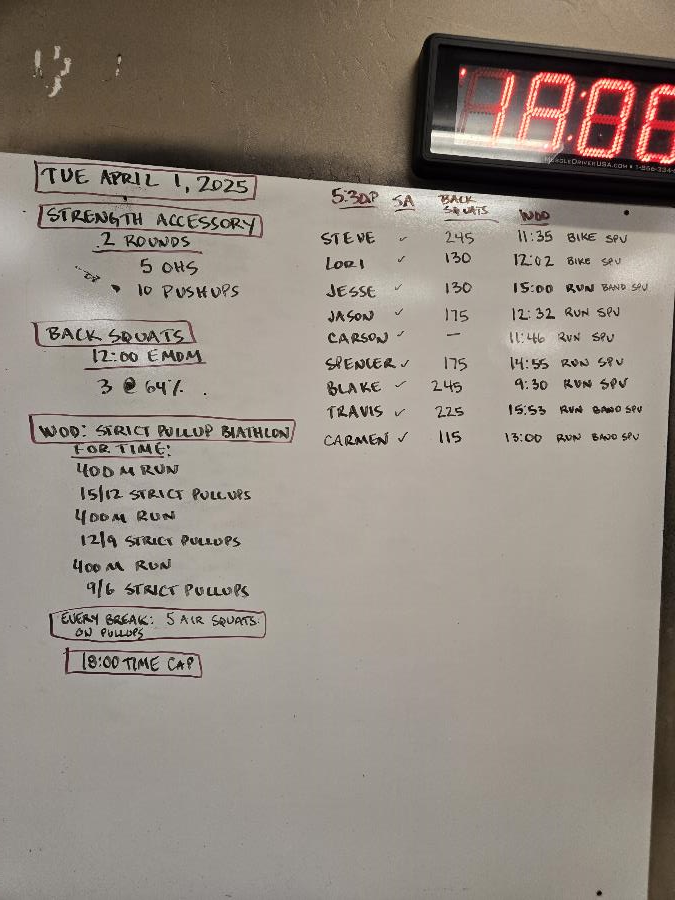 18:00
MURGLEDRIVERUSA.COM • 1-856-334-
TUE APRIL 1, 2025
STRENGTH ACCESSORY
2 ROUNDS
5 OHS
10 PUSHUPS
BACK SQUATS
12:00 EMOM
3 @ 64%
WOD: STRICT PULLUP BIATHLON
FOR TIME:
400 M RUN
15/12 STRICT PULLUPS
400 M RUN
12/9 STRICT PULLUPS
400 M RUN
9/6 STRICT PULLUPS
EVERY BREAK: 5 AIR SQUATS
ON PULLUPS
18:00 TIME CAP
5:30P SA BACK SQUATS WOD
STEVE ✓ 245 11:35 BIKE SPU
LORI ✓ 130 12:02 BIKE SPU
JESSE ✓ 130 15:00 RUN BAND SPU
JASON ✓ 175 12:32 RUN SPU
CARSON ✓ — 11:46 RUN SPU
SPENCER ✓ 175 14:55 RUN SPU
BLAKE ✓ 245 9:30 RUN SPU
TRAVIS ✓ 225 15:53 RUN BAND SPU
CARMEN ✓ 115 13:00 RUN BAND SPU